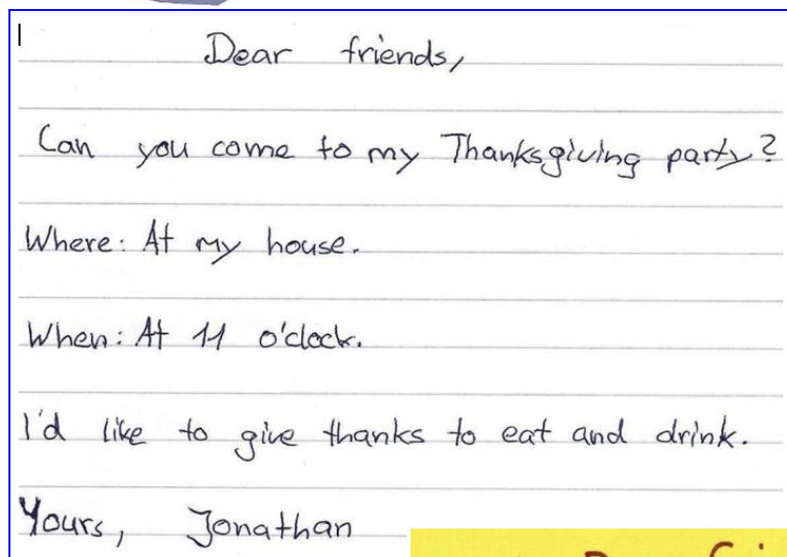 Dear friends,
Can you come to my Thanksgiving party?
Where: At my house.
When: At 11 o'clock.
I'd like to give thanks to eat and drink.
Yours, Jonathan